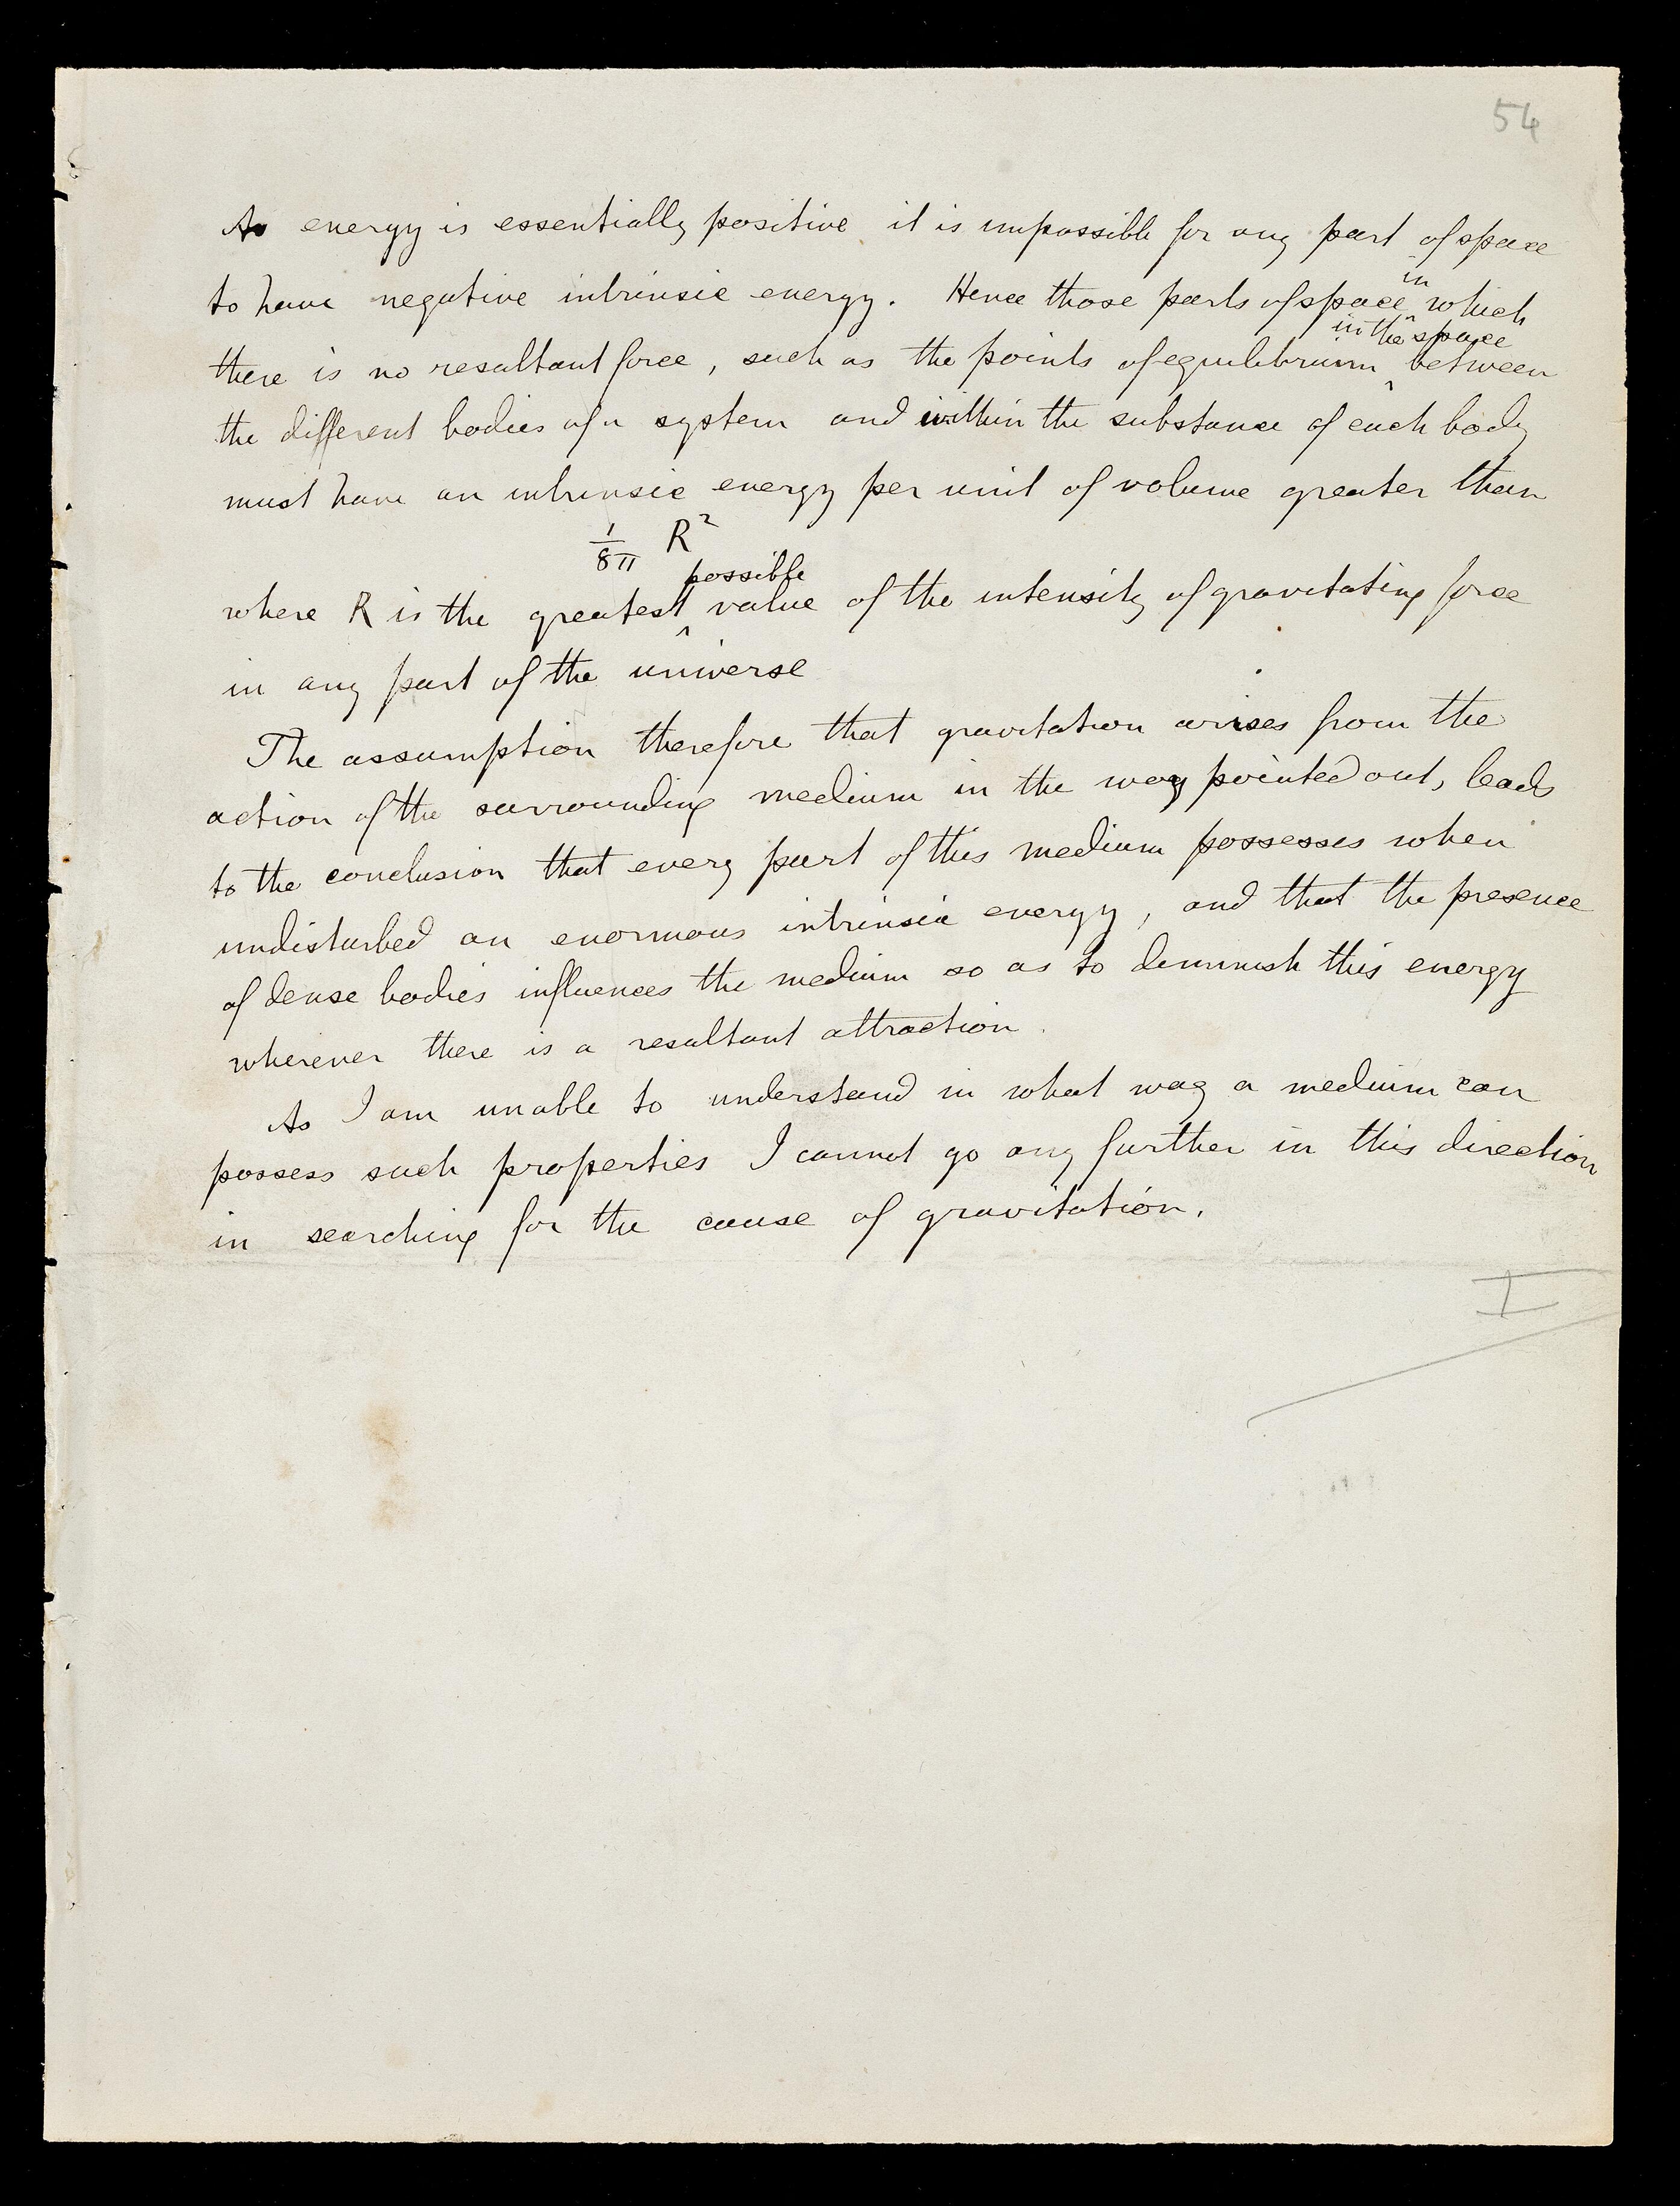 54
As energy is essentially positive it is impossible for any part of space
to have negative intrinsic energy. Hence those parts of space in which
there is no resultant force, such as the points of equilibrium in the space between
the different bodies of a system and within the substance of each body
must have an intrinsic energy per unit of volume greater than
1/8π R²
where R is the greatest possible value of the intensity of gravitating force
in any part of the universe
The assumption therefore that gravitation arises from the
action of the surrounding medium in the way pointed out, leads
to the conclusion that every part of this medium possesses when
undisturbed an enormous intrinsic energy, and that the presence
of dense bodies influences the medium so as to diminish this energy
wherever there is a resultant attraction.
As I am unable to understand in what way a medium can
possess such properties I cannot go any further in this direction
in searching for the cause of gravitation.
I